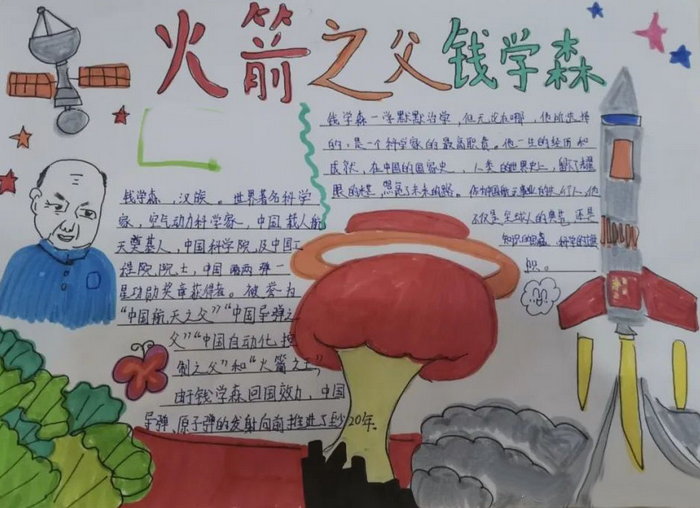 火箭之父钱学森
钱学森，汉族。世界著名科学
家，空气动力科学家，中国载人航
天奠基人，中国科学院及中国工
程院院士，中国两弹一
星功勋奖章获得者。被誉为
“中国航天之父”“中国导弹之
父”“中国自动化控
制之父”和“火箭之王”，
由于钱学森回国效力，中国
导弹、原子弹的发射向前推进了至少20年.
钱学森一生默默治学，但无论在哪，他所选择
的，是一个科学家的最高职责。他一生的经历和
成就，在中国的国家史，人类的世界史上，
未来的路。
不仅是全球人的典范，还是
知识的
织。